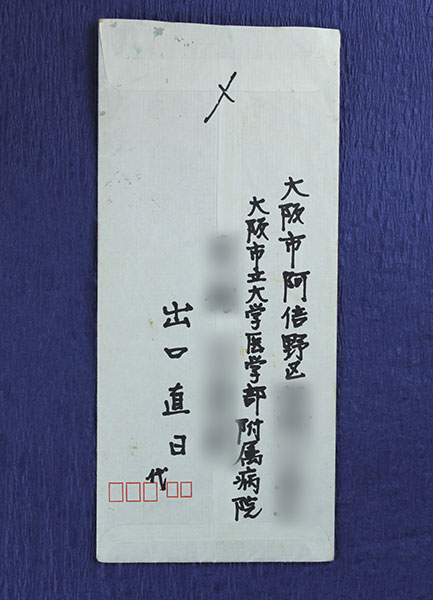 〆
大阪市阿倍野区
大阪市立大学医学部附属病院
出口直日
代